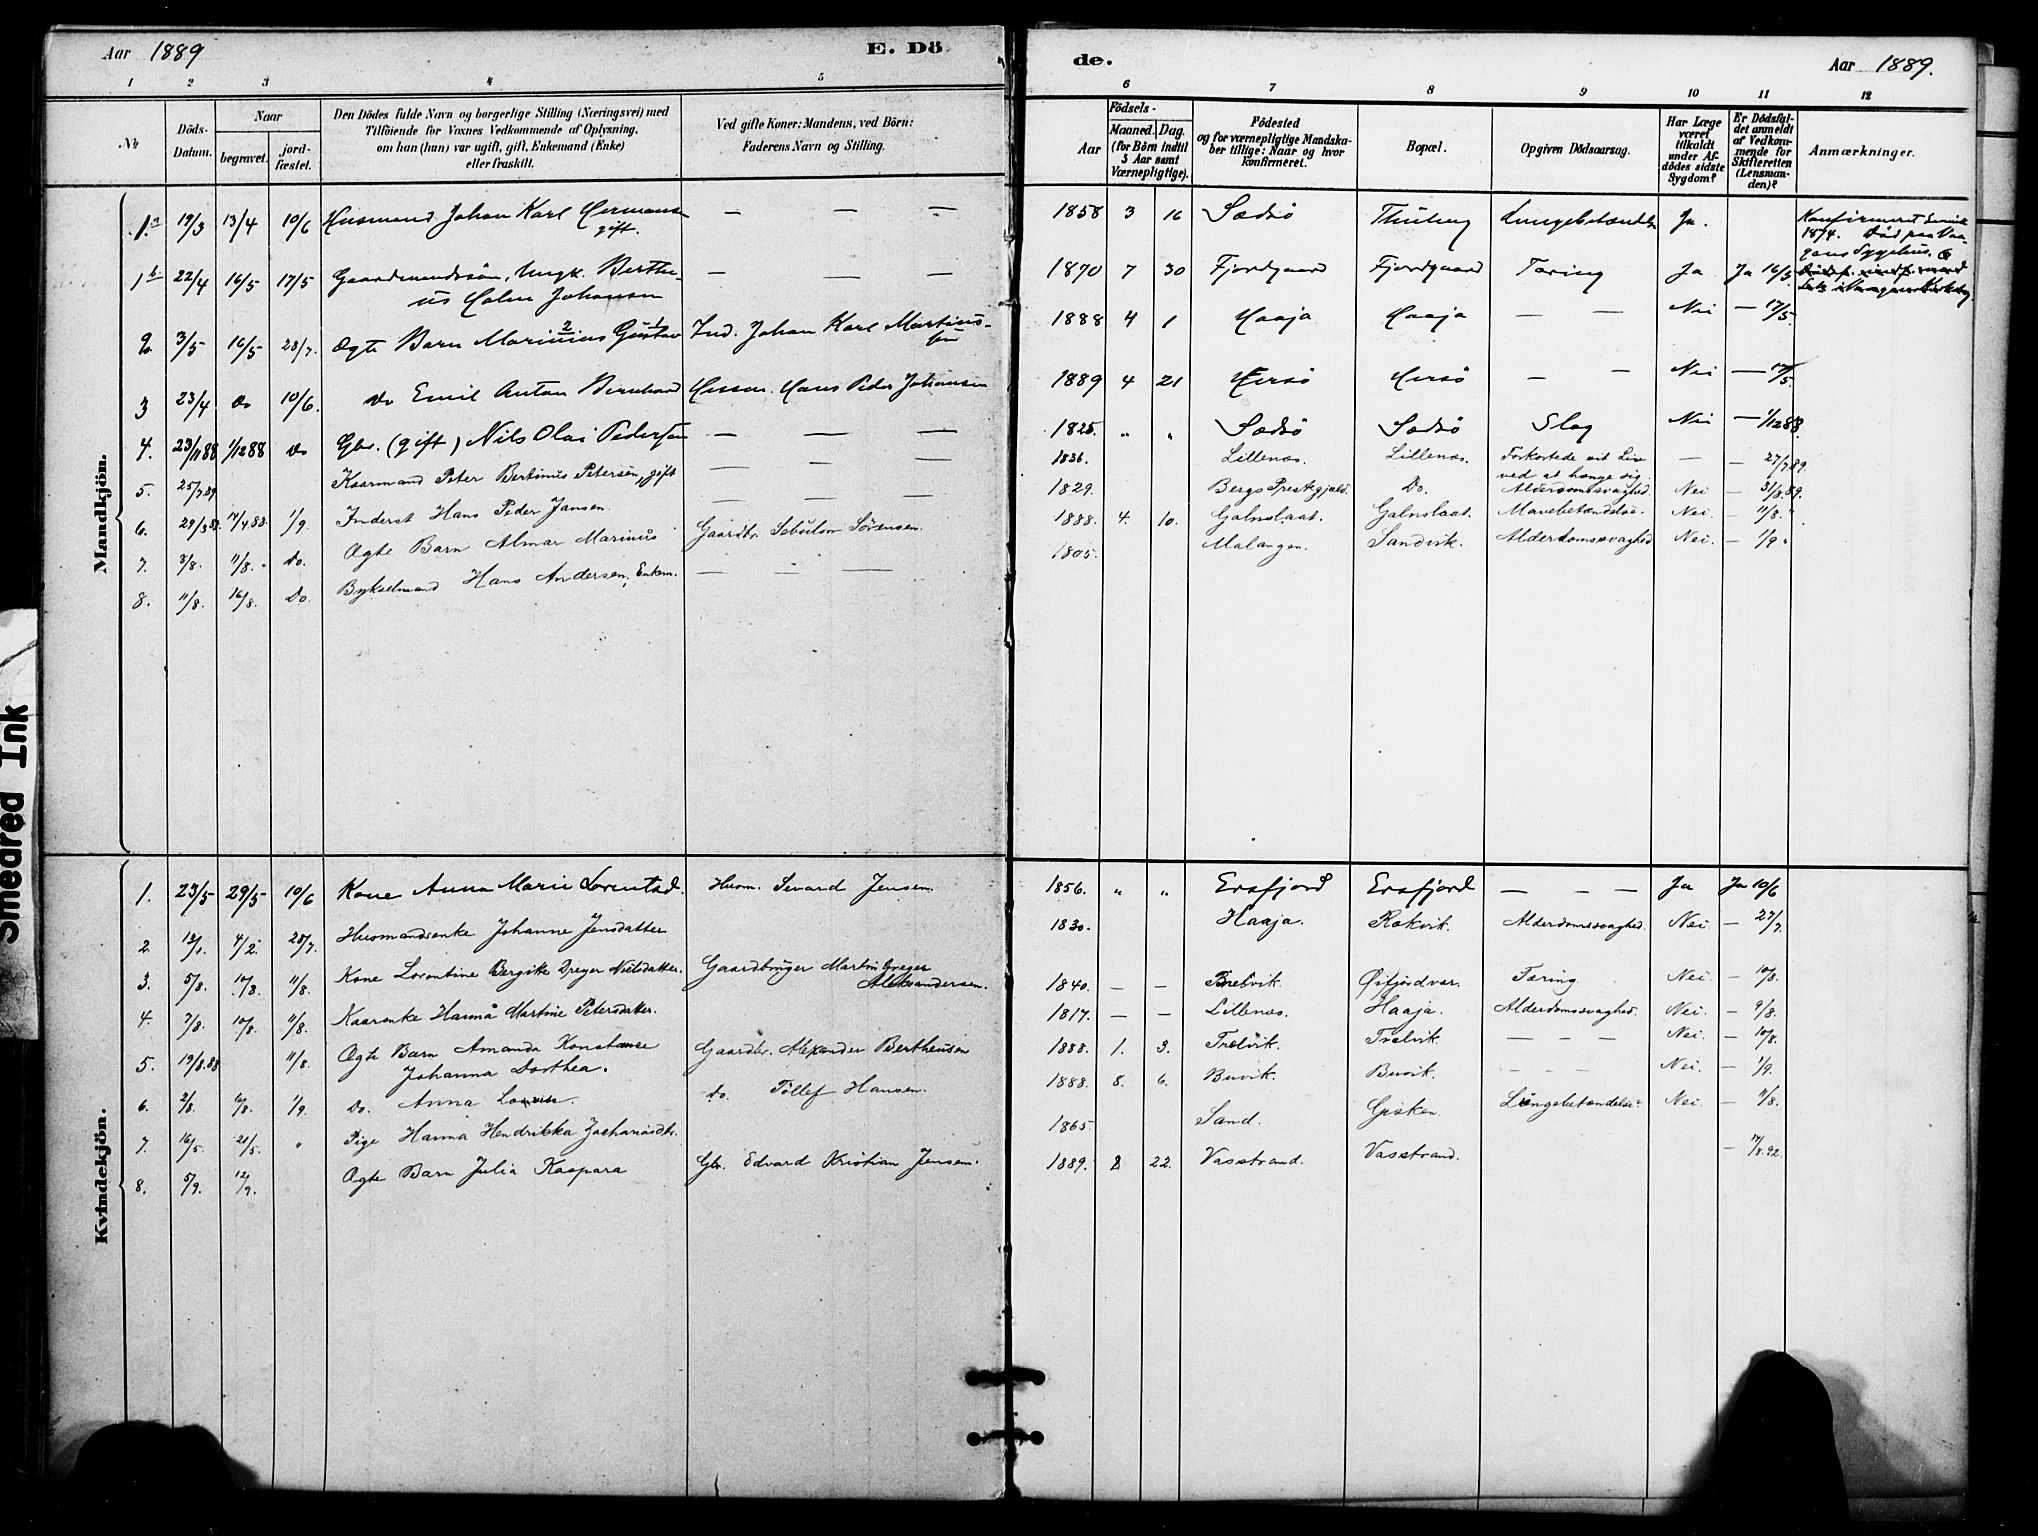 Aar 1889
E. Dö
de.
Aar 1889.
1 2 3 4 5
6 7 8 9 10 11 12
№
Döds-Datum.
Naar
begravet.
jord-fæstet.
Den Dödes fulde Navn og borgerlige Stilling (Næringsvei) med
Tilföiende for Voxnes Vedkommende af Oplysning,
om han (hun) var ugift, gift, Enkemand (Enke)
eller fraskilt.
Ved gifte Koner: Mandens, ved Börn:
Faderens Navn og Stilling.
Födsels-
Aar
Maaned. Dag.
(for Börn indtil
5 Aar samt
Værnepligtige).
Födested
og for værnepligtige Mandska-
ber tillige: Naar og hvor
konfirmeret.
Bopæl.
Opgiven Dödsaarsag.
Har Læge
været
tilkaldt
under Af-
dödes sidste
Sygdom?
Er Dödsfal-
det anmeldt
af Vedkom-
mende for
Skifteretten
(Lensman-
den)?
Anmærkninger.
Mandkjön.
1.a 19/3 13/4 10/6 Husmand Johan Karl Hermans- gift. — — — 1858 3 16 Sædsö Thuleng Lungebetændelse Ja. Konfirmeret
1874. Död paa Vaa-
gans Sygehus.
1b 22/4 16/5 17/5 Gaardmandssön, Ungk. Berthe-
us Holm Johansen — — — 1870 7 30 Fjordgaard Fjordgaard Tæring Ja Ja 16/5
2 3/5 16/5 28/7. Ægte Barn Marinius 2 Gustav 1 Ind. Johan Karl Martins-
sen 1888 4 1 Haaja Haaja — — Nei — 17/5.
3 23/4 Do 10/6. Do Emil Anton Bernhard Husm. Hans Peder Johansen 1889 4 21 Hersö Hersö — — Nei — 17/5
4. 23/11 88 1/12 88 Do Gbr. (gift) Nils Olai Pedersen — — — 1825. " " Sædsö Sædsö Slag Nei — 1/12 88.
5. 25/7.89 Kaarmand Peter Bertinus Petersen, gift — — — 1836. Lillenæs. Lillenæs. Forkortede sit Liv
ved at hænge sig. — — 27/7 89.
6. 29/3 88. 14/4.88. 1/9. Inderst Hans Peder Jansen. — — — 1829. Bergs Prestegjæld. Do. Alderdomssvaghed. Nei — 31/8.89.
7. 3/8. 11/8. Do. Ægte Barn Almar Marinus Gaardbr. Sebulon Sörensen. 1888. 4. 10. Galnslaat. Galnslaat. Mavebetændelse. Nei. — 11/8. "
8. 11/8. 16/8. Do. Bykselmand Hans Andersen, Enkem. — — — 1805. Malangen. Sandvik. Alderdomssvaghed Nei. — 1/9 "
Kvindekjön.
1. 23/5 29/5 10/6 Kone Anna Marie Lorentsd. Husm. Sevard Jensen. 1856. " " Ersfjord Ersfjord — — — Ja Ja 10/6
2. 4/2. 28/7. Husmandsenke Johanne Jensdatter 1830. Haaja. Rakvik. Alderdomssvaghed. Nei. — 27/7.
3. 5/8. 10/8. 11/8. Kone Lorentine Bergitte Dreyer Nielsdatter. Gaardbruger Martin Greger
Aleksandersen. 1840. — — Trælvik. Öifjordvær. Tæring. Nei — 10/8.
4. 7/8. 10/8. 11/8. Kaarenke Hanna Martine Petersdatter. 1817. — — Lillenæs. Haaja. Alderdomssvaghed. Nei. — 9/8.
5. 19/8.88 11/8. Ægte Barn Amanda Konstanse
Johanna Dorthea. Gaardbr. Alexander Bertheusen 1888. 1. 3. Trælvik. Trælvik. — — — Nei — 10/8.
6. 2/8. 6/8. 1/9. Do. Anna Do. Tollef Hansen. 1888. 8. 6. Buvik. Buvik. — — — Nei. — 1/9.
7. 16/5. 21/5. " Pige Hanna Hendrikka Zachariasdtr. 1865. Sand. Gisken. Lungebetændelse. Nei. — 9/8.
8. 5/9. 12/9. Ægte Barn Julia Kaspara Gbr. Edvard Kristian Jensen. 1889. 8 22. Vasstrand. Vasstrand. — 14/8.92.
Smeared Ink